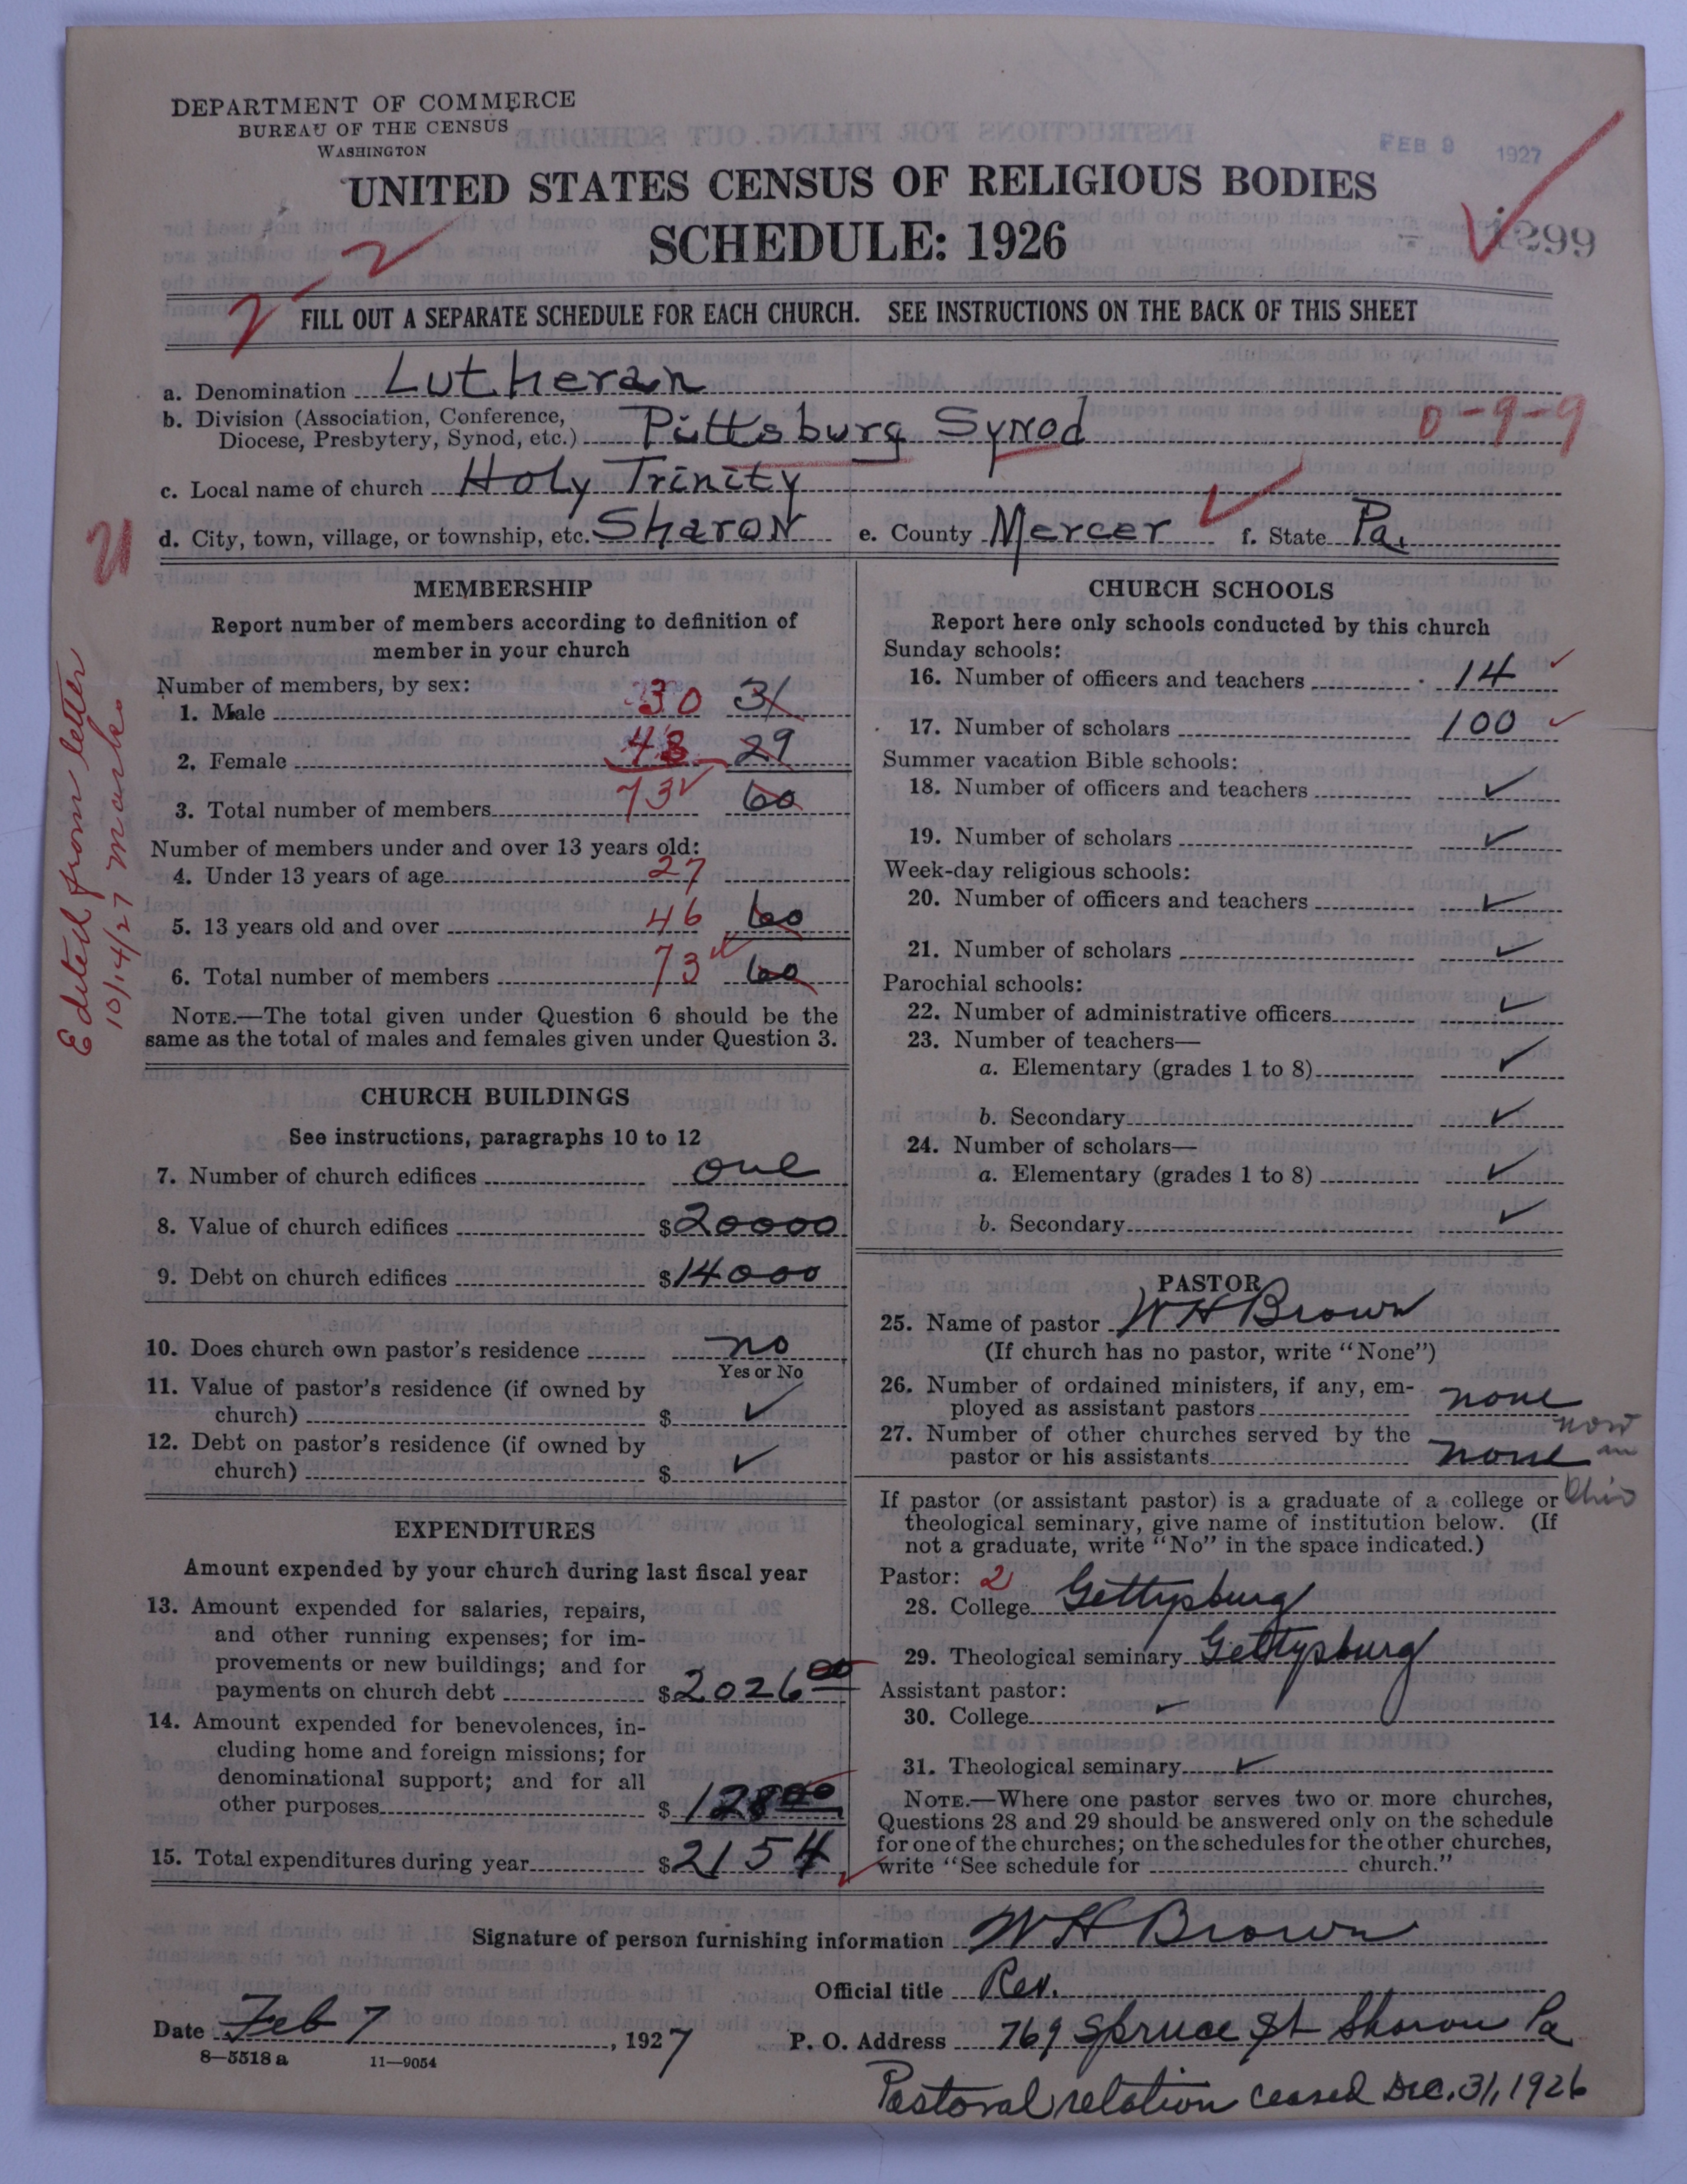 DEPARTMENT OF COMMERCE
BUREAU OF THE CENSUS
WASHINGTON
FEB 9 1927
UNITED STATES CENSUS OF RELIGIOUS BODIES
SCHEDULE: 1926
299
2
2
FILL OUT A SEPARATE SCHEDULE FOR EACH CHURCH. SEE INSTRUCTIONS ON THE BACK OF THIS SHEET
a. Denomination Lutheran
b. Division (Association, Conference,
Diocese, Presbytery, Synod, etc.) Pittsburg Synod 0-9-9
c. Local name of church Holy Trinity
d. City, town, village, or township, etc. Sharon e. County Mercer f. State Pa.
Edited from letter
10/14/27 Marks
MEMBERSHIP
Report number of members according to definition of
member in your church
Number of members, by sex:
1. Male 30 31
2. Female 43 29
3. Total number of members 73 60
Number of members under and over 13 years old:
4. Under 13 years of age 27
5. 13 years old and over 46 60
6. Total number of members 73 60
NOTE.—The total given under Question 6 should be the
same as the total of males and females given under Question 3.
CHURCH BUILDINGS
See instructions, paragraphs 10 to 12
7. Number of church edifices one
8. Value of church edifices $20000
9. Debt on church edifices $14000
10. Does church own pastor's residence no
Yes or No
11. Value of pastor's residence (if owned by
church) $ ✓
12. Debt on pastor's residence (if owned by
church) $ ✓
EXPENDITURES
Amount expended by your church during last fiscal year
13. Amount expended for salaries, repairs,
and other running expenses; for im-
provements or new buildings; and for
payments on church debt $2026 00
14. Amount expended for benevolences, in-
cluding home and foreign missions; for
denominational support; and for all
other purposes $128 00
15. Total expenditures during year $2154
CHURCH SCHOOLS
Report here only schools conducted by this church
Sunday schools:
16. Number of officers and teachers 14 ✓
17. Number of scholars 100 ✓
Summer vacation Bible schools:
18. Number of officers and teachers ✓
19. Number of scholars ✓
Week-day religious schools:
20. Number of officers and teachers ✓
21. Number of scholars ✓
Parochial schools:
22. Number of administrative officers ✓
23. Number of teachers—
a. Elementary (grades 1 to 8) ✓
b. Secondary ✓
24. Number of scholars—
a. Elementary (grades 1 to 8) ✓
b. Secondary ✓
PASTOR
25. Name of pastor W H Brown
(If church has no pastor, write "None")
26. Number of ordained ministers, if any, em-
ployed as assistant pastors none
27. Number of other churches served by the
pastor or his assistants none
now
in
Ohio
If pastor (or assistant pastor) is a graduate of a college or
theological seminary, give name of institution below. (If
not a graduate, write "No" in the space indicated.)
Pastor: 2
28. College Gettysburg
29. Theological seminary Gettysburg
Assistant pastor:
30. College ✓
31. Theological seminary ✓
NOTE.—Where one pastor serves two or more churches,
Questions 28 and 29 should be answered only on the schedule
for one of the churches; on the schedules for the other churches,
write "See schedule for church."
Signature of person furnishing information W H Brown
Official title Rev.
Date Feb 7, 1927 P. O. Address 769 Spruce St Sharon Pa
8—5518 a 11—9054
Pastoral relation ceased Dec. 31, 1926